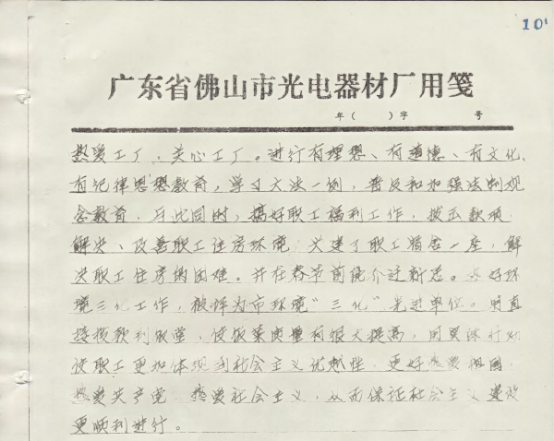 101
广东省佛山市光电器材厂用笺
年（ ）字 号
热爱工厂，关心工厂。进行有理想、有道德、有文化、
有纪律思想教育，学习大法一例，普及和加强法制观
念教育，与此同时，搞好职工福利工作，拨出款项
解决、改善职工住房环境，又建了职工宿舍一座，解
决职工住房的困难。并在春节前能介迁新居。好环
境三化工作，被评为市环境“三化”先进单位。用直
接拨款利，使饭菜质量有很大提高，用实际行动
使职工更加体现到社会主义优越性，更好热爱祖国
热爱共产党 热爱社会主义，从而保证社会主义建设
更顺利进行。